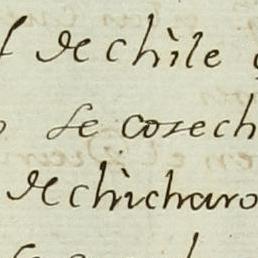 de chìle
se cosech
de chìcharo